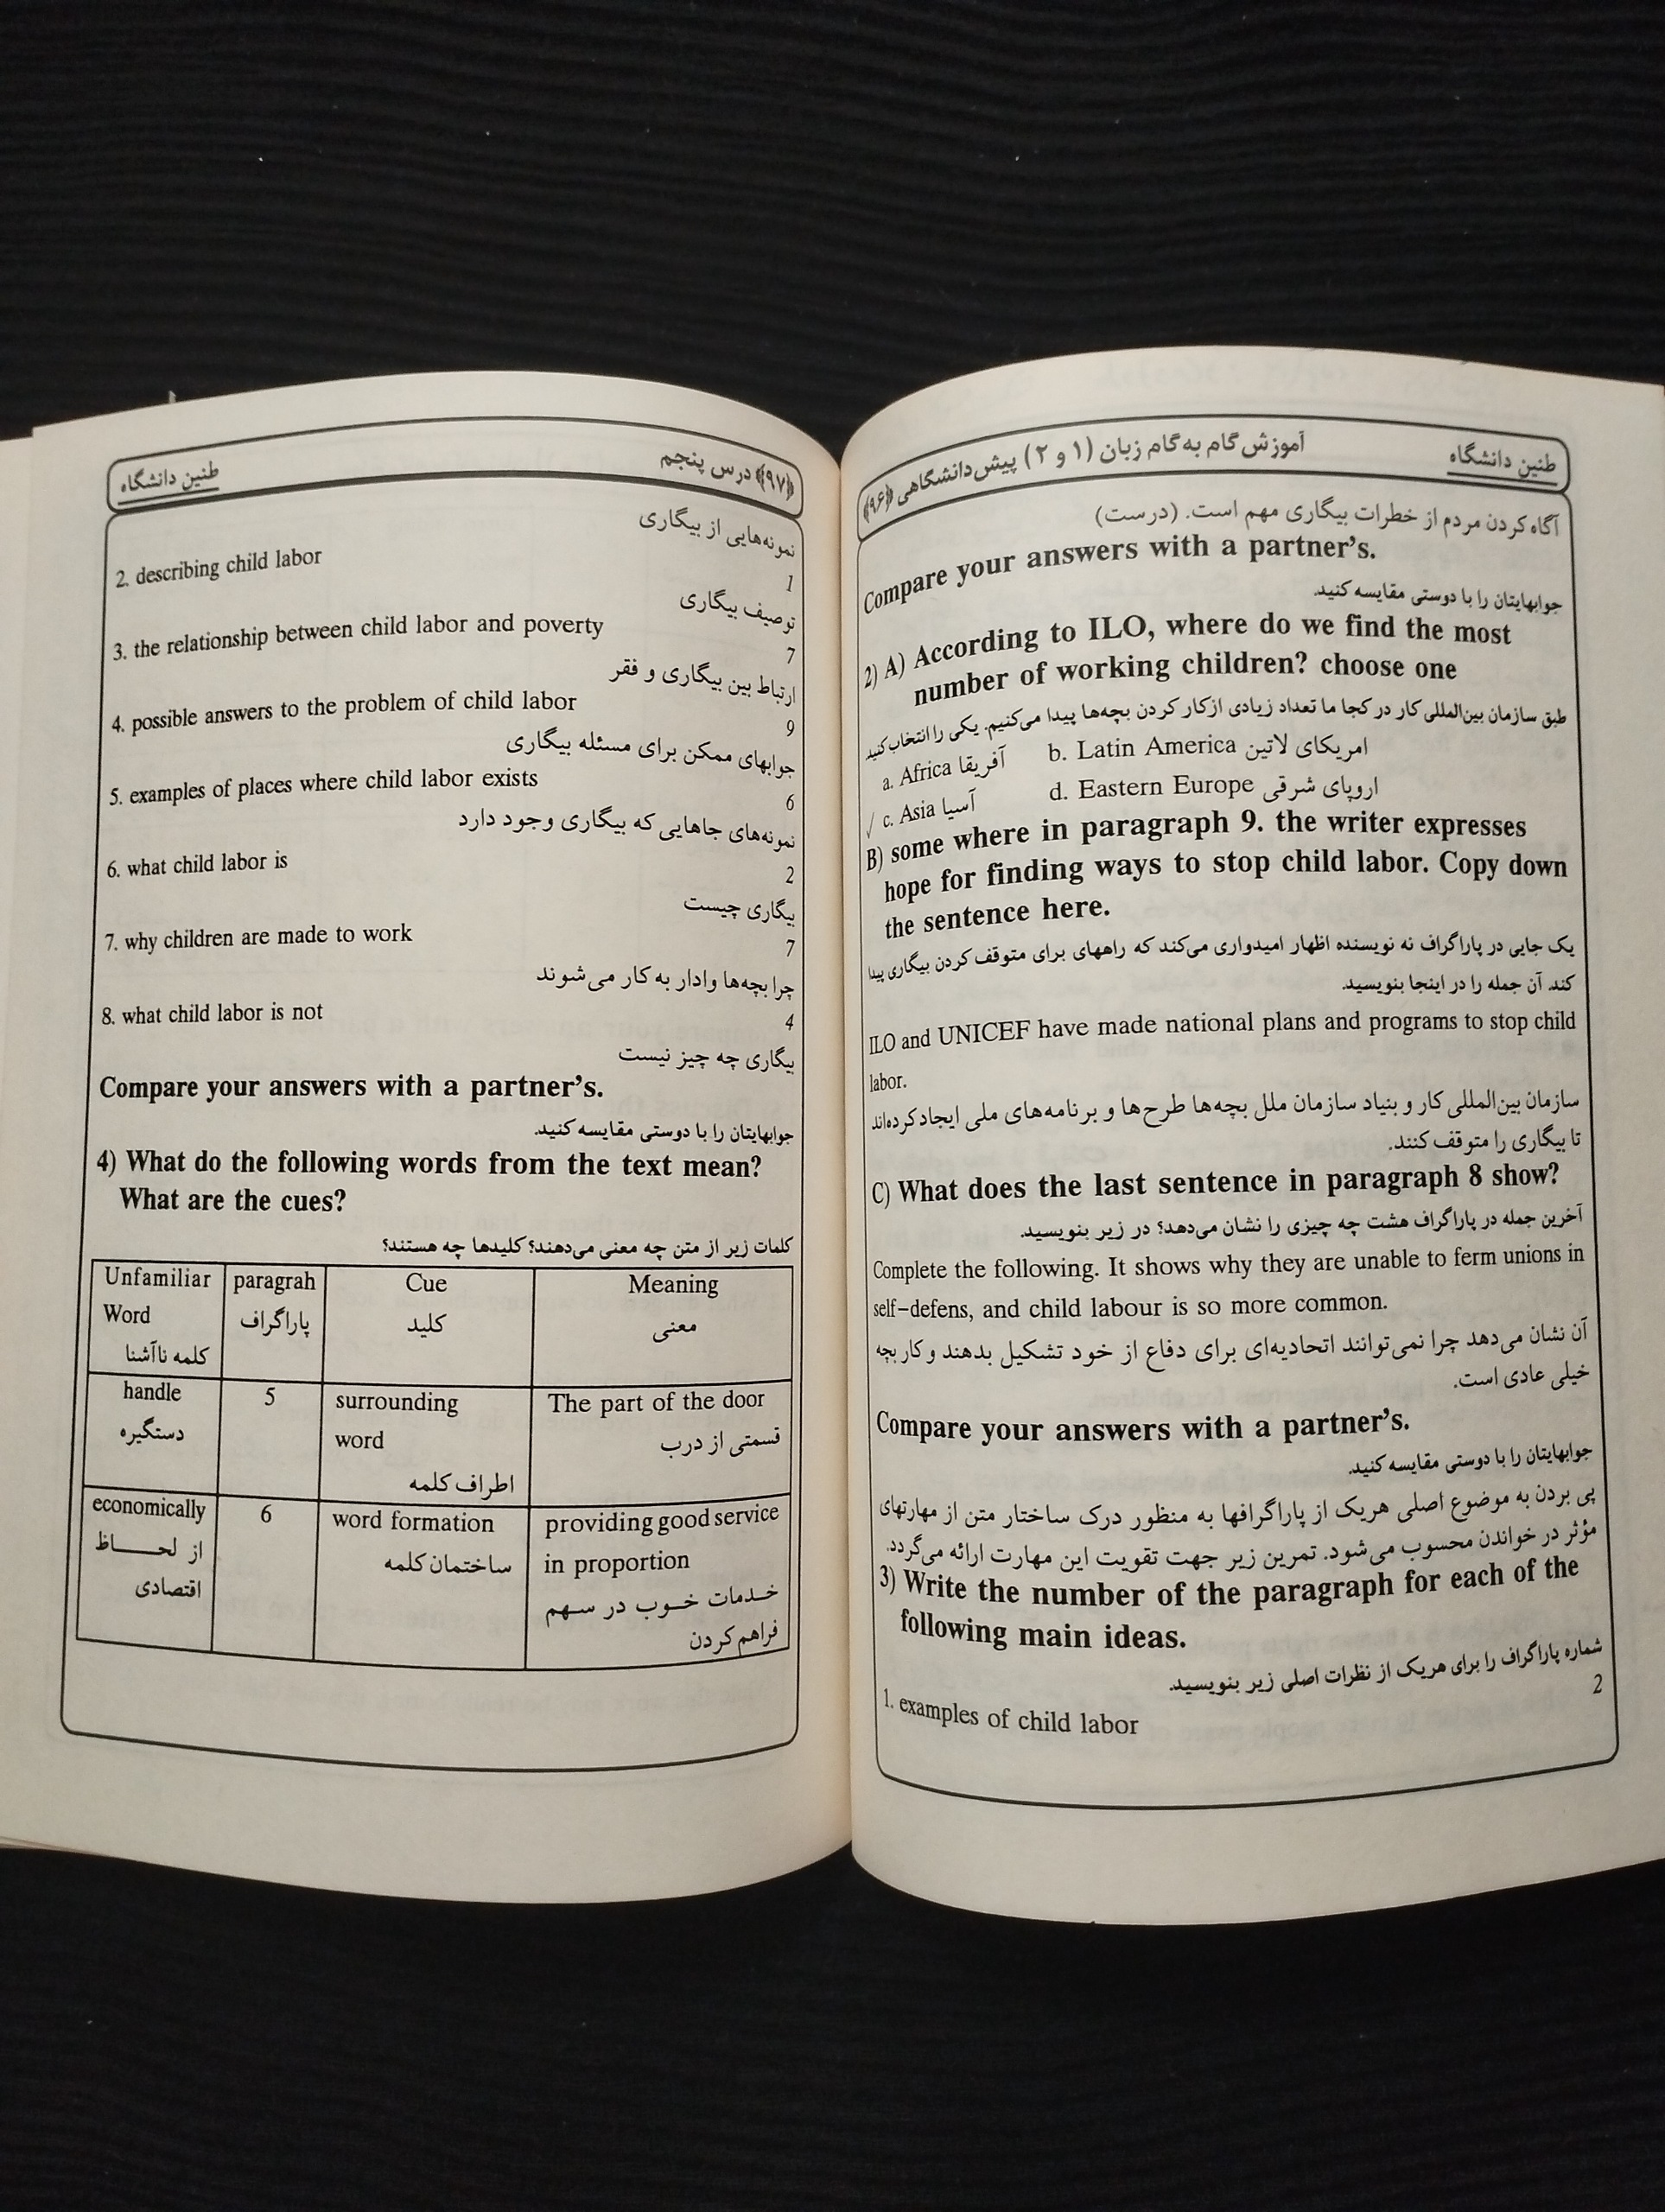 طنین دانشگاه
آموزش گام به گام زبان (۱ و ۲) پیش‌دانشگاهی ﴿۹۶﴾
آگاه کردن مردم از خطرات بیگاری مهم است. (درست)
Compare your answers with a partner's.
جوابهایتان را با دوستی مقایسه کنید.
2) A) According to ILO, where do we find the most
number of working children? choose one
طبق سازمان بین‌المللی کار در کجا ما تعداد زیادی از کار کردن بچه‌ها پیدا می‌کنیم. یکی را انتخاب کنید
a. Africa آفریقا b. Latin America امریکای لاتین
√ c. Asia آسیا d. Eastern Europe اروپای شرقی
B) some where in paragraph 9. the writer expresses
hope for finding ways to stop child labor. Copy down
the sentence here.
یک جایی در پاراگراف نه نویسنده اظهار امیدواری می‌کند که راههای برای متوقف کردن بیگاری پیدا
کند. آن جمله را در اینجا بنویسید.
ILO and UNICEF have made national plans and programs to stop child
labor.
سازمان بین‌المللی کار و بنیاد سازمان ملل بچه‌ها طرح‌ها و برنامه‌های ملی ایجاد کرده‌اند
تا بیگاری را متوقف کنند.
C) What does the last sentence in paragraph 8 show?
آخرین جمله در پاراگراف هشت چه چیزی را نشان می‌دهد؟ در زیر بنویسید.
Complete the following. It shows why they are unable to ferm unions in
self-defens, and child labour is so more common.
آن نشان می‌دهد چرا نمی‌توانند اتحادیه‌ای برای دفاع از خود تشکیل بدهند و کار بچه
خیلی عادی است.
Compare your answers with a partner's.
جوابهایتان را با دوستی مقایسه کنید.
پی بردن به موضوع اصلی هریک از پاراگرافها به منظور درک ساختار متن از مهارتهای
مؤثر در خواندن محسوب می‌شود. تمرین زیر جهت تقویت این مهارت ارائه می‌گردد.
3) Write the number of the paragraph for each of the
following main ideas.
شماره پاراگراف را برای هریک از نظرات اصلی زیر بنویسید.
1. examples of child labor 2
﴿۹۷﴾ درس پنجم
طنین دانشگاه
نمونه‌هایی از بیگاری
2. describing child labor 1
توصیف بیگاری
3. the relationship between child labor and poverty 7
ارتباط بین بیگاری و فقر
4. possible answers to the problem of child labor 9
جوابهای ممکن برای مسئله بیگاری
5. examples of places where child labor exists 6
نمونه‌های جاهایی که بیگاری وجود دارد
6. what child labor is 2
بیگاری چیست
7. why children are made to work 7
چرا بچه‌ها وادار به کار می‌شوند
8. what child labor is not 4
بیگاری چه چیز نیست
Compare your answers with a partner's.
جوابهایتان را با دوستی مقایسه کنید.
4) What do the following words from the text mean?
What are the cues?
کلمات زیر از متن چه معنی می‌دهند؟ کلیدها چه هستند؟
Unfamiliar paragrah Cue Meaning
Word پاراگراف کلید معنی
کلمه ناآشنا
handle 5 surrounding The part of the door
دستگیره word قسمتی از درب
اطراف کلمه
economically 6 word formation providing good service
از لحـــاظ ساختمان کلمه in proportion
اقتصادی خـدمات خـوب در سـهم
فراهم کردن